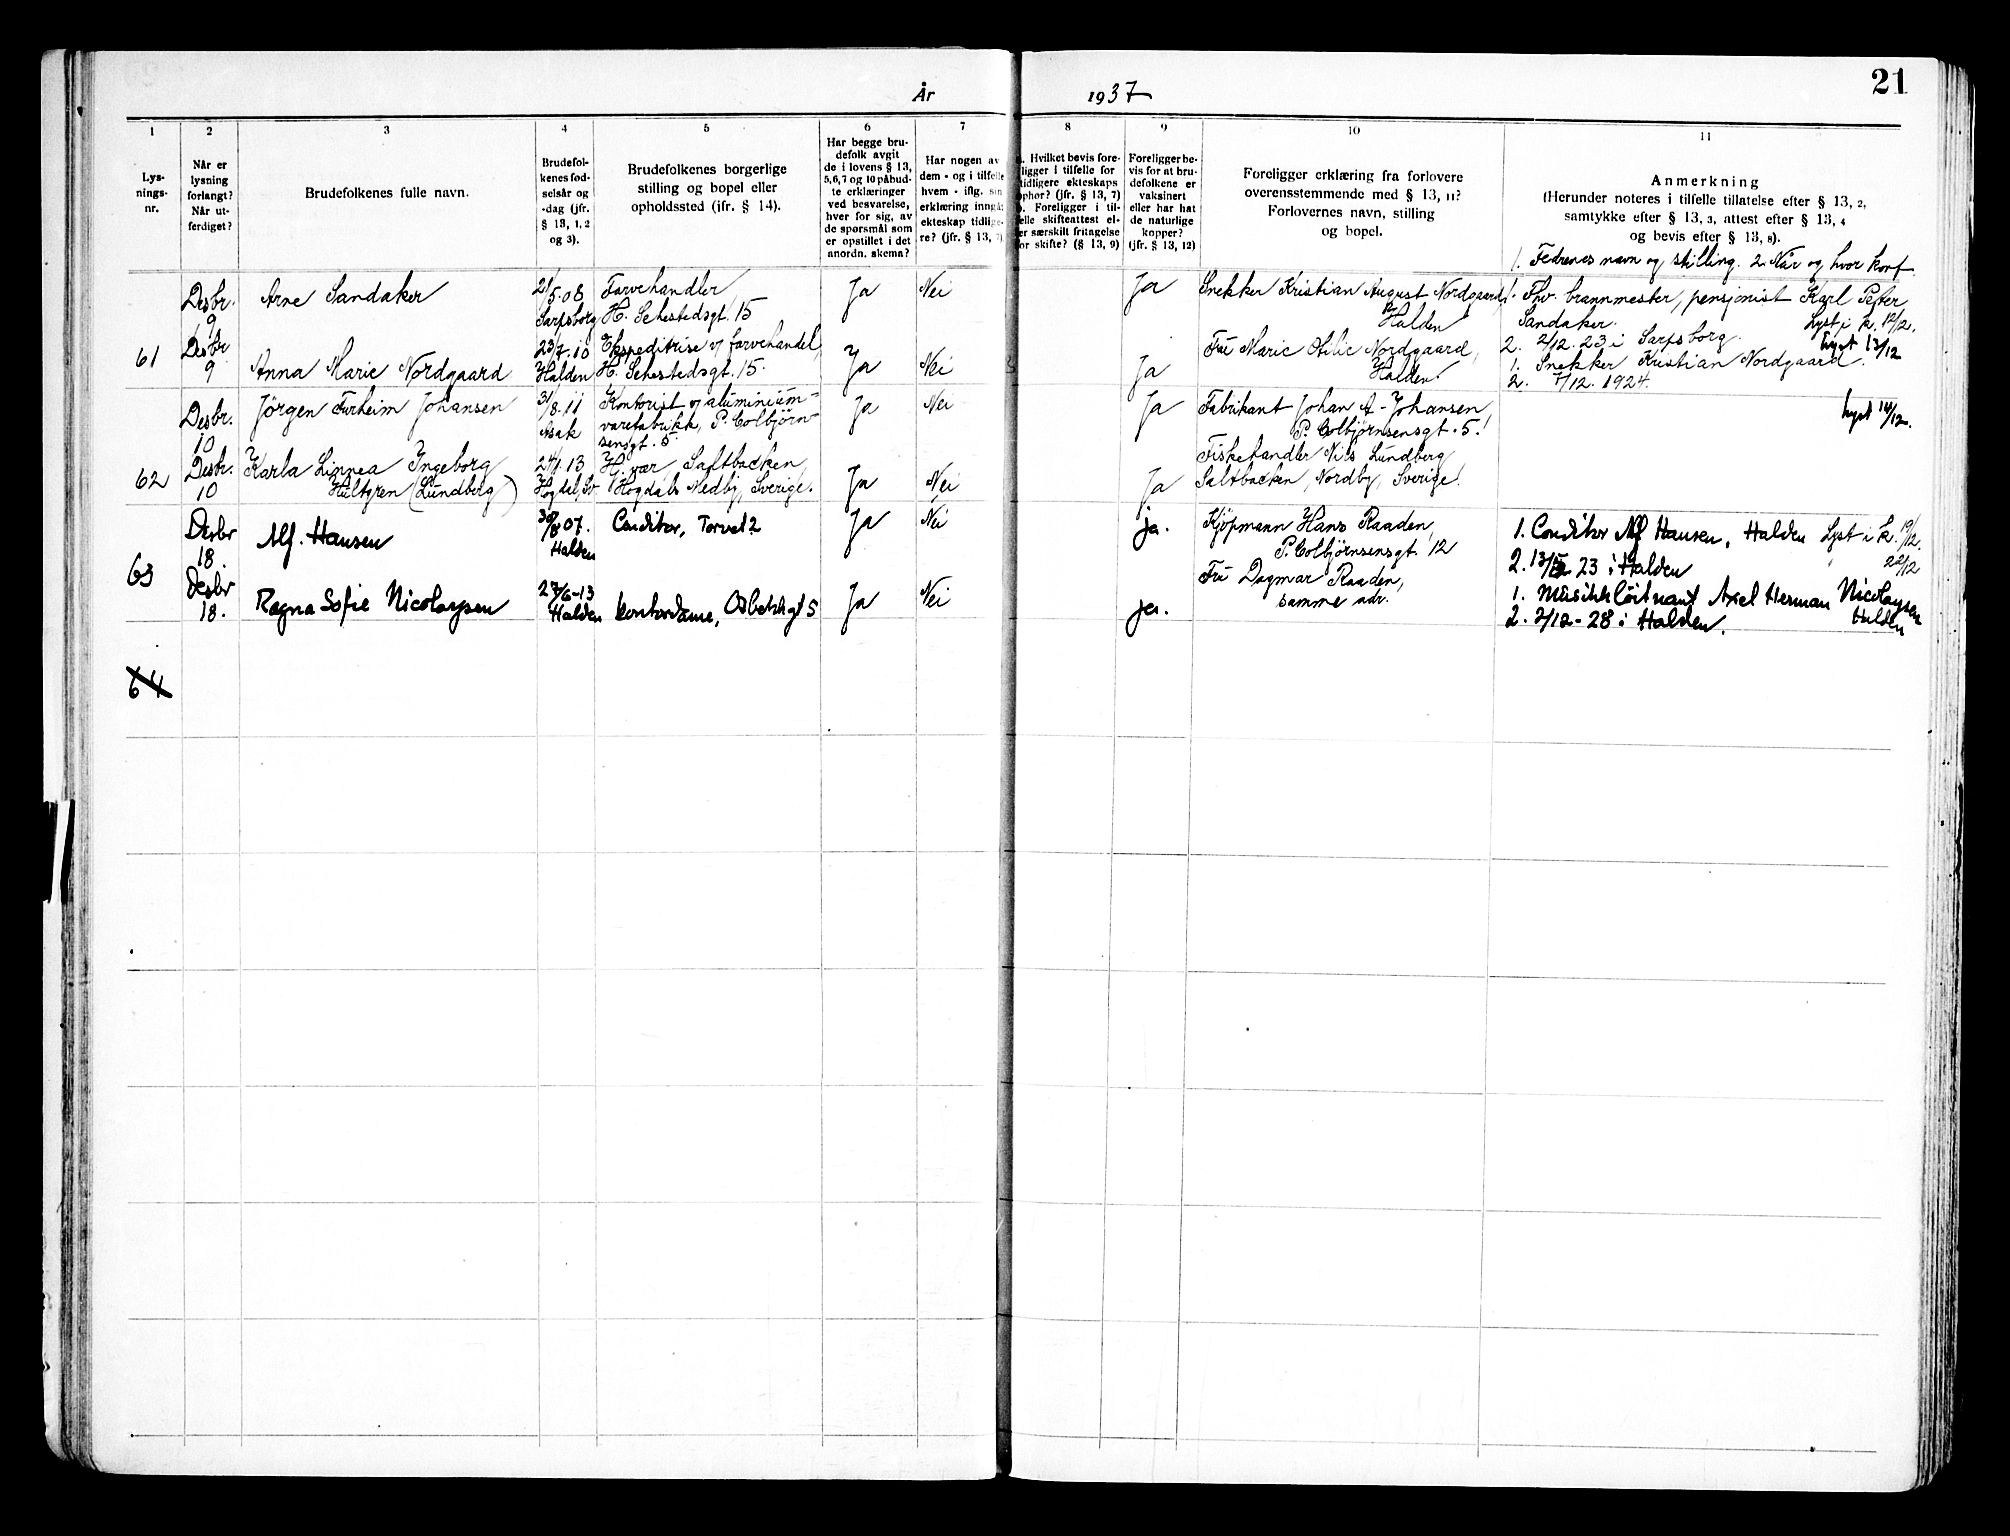 År 1937
21
1
2
3
4
5
6
7
8
9
10
11
Lys-
nings-
nr.
Når er
lysning
forlangt?
Når ut-
ferdiget?
Brudefolkenes fulle navn.
Brudefol-
kenes fød-
selsår og
-dag (jfr.
§ 13, 1, 2
og 3).
Brudefolkenes borgerlige
stilling og bopel eller
opholdssted (ifr. § 14).
Har begge bru-
defolk avgit
de i lovens § 13,
5,6,7 og 10 påbud-
te erklæringer
ved besvarelse,
hver for sig, av
de spørsmål som
er opstillet i det
anordn. skema?
Har nogen av
dem - og i tilfelle
hvem - iflg. sin
erklæring inngåt
ekteskap tidlige-
re? (jfr. § 13, 7)
. Hvilket bevis fore-
ligger i tilfelle for
tidligere ekteskaps
ophor? (jfr. § 13, 7)
. Foreligger i til-
felle skifteattest el-
er særskilt fritagelse
for skifte? (§ 13, 9)
Foreligger be-
vis for at bru-
defolkene er
vaksinert
eller har hat
de naturlige
kopper?
(jfr. § 13, 12)
Foreligger erklæring fra forlovere
overensstemmende med § 13, 11?
Forlovernes navn, stilling
og bopel.
Anmerkning
(Herunder noteres i tilfelle tillatelse efter § 13, 2,
samtykke efter § 13, 3, attest efter § 13, 4
og bevis efter § 13, 8).
1. Fedrenes navn og stilling. 2. Når og hvor konf.
61
Desbr.
9
Arne Sandaker
21/5.08
Sarpsborg
Farvehandler,
H. Sehestedsgt. 15
Ja
Nei
Ja
Snekker Kristian August Nordgaard,
Halden
1. Fhv. brannmester, pensjonist Karl Peter
Sandaker. Lyst i k. 12/2.
2. 2/12. 23 i Sarpsborg. Lyst 13/12
Desbr
9
Anna Marie Nordgaard
23/7.10
Halden
Ekspeditrise v/ farvehandel,
H. Sehestedsgt. 15.
Ja
Nei
Ja
Fru Marie Otilie Nordgaard,
Halden.
1. Snekker Kristian Nordgaard.
2. 7/12. 1924.
62
Desbr.
10
Jörgen Furheim Johansen
31/8.11
Asak
Kontorist v/ aluminium-
varefabrikk, P. Colbjørn-
sensgt. 5.
Ja
Nei
Ja
Fabrikant Johan A. Johansen,
P. Colbjørnsensgt. 5.
Lyst 12/12.
Desbr.
10
Karla Linnea Ingeborg
Hultgren (Lundberg)
24/1.13
Hogdal, Sv.
H. vær, Saltbacken,
Hogdal, Nedby, Sverige.
Ja
Nei
Ja
Fiskehandler Nils Lundberg
Saltbacken, Nordby, Sverige.
63
Desbr
18.
Alf. Hansen
30/8 07.
Halden
Conditor, Torvet 2
Ja
Nei
ja.
Kjöpmann Hans Raaden,
P. Colbjørnsensgt. 12
1. Conditor Alf Hansen, Halden Lyst i k. 19/12.
2. 13/12 23 i Halden " 22/12
Desbr
18.
Ragna Sofie Nicolaysen
27/6-13
Halden
kontordame, Osbekkgt 5
Ja
Nei
ja.
Fru Dagmar Raaden,
samme adr.
1. Musikklöitnant Axel Herman Nicolaysen
Halden
2. 2/12-28 i Halden.
64